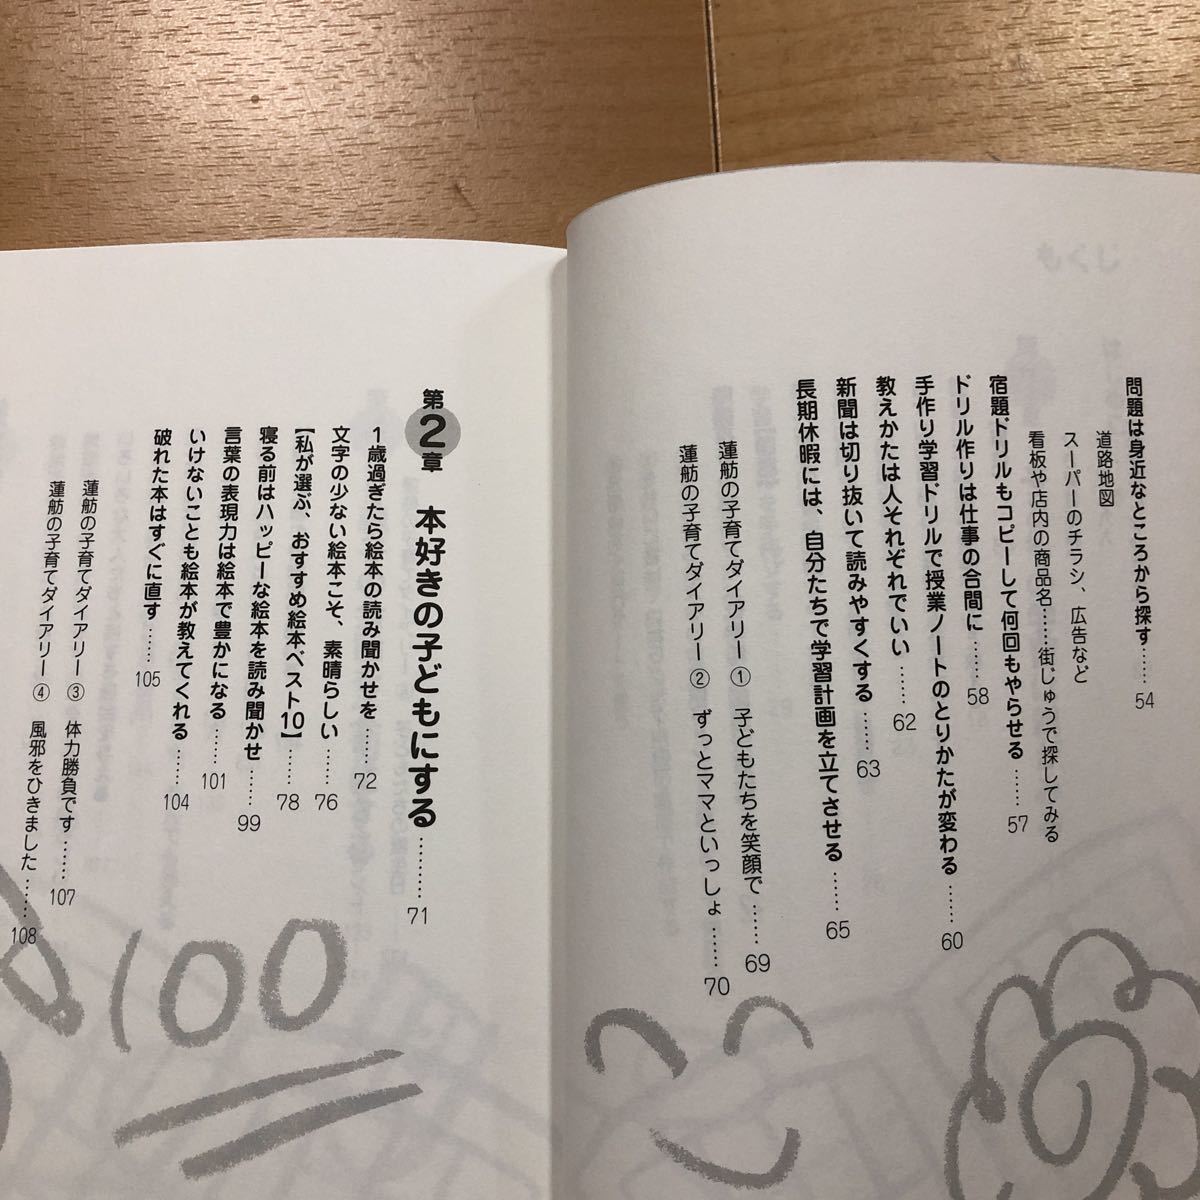 もくじ
問題は身近なところから探す……54
道路地図
スーパーのチラシ、広告など
看板や店内の商品名……街じゅうで探してみる
宿題ドリルもコピーして何回もやらせる……57
ドリル作りは仕事の合間に……58
手作り学習ドリルで授業ノートのとりかたが変わる……60
教えかたは人それぞれでいい……62
新聞は切り抜いて読みやすくする……63
長期休暇には、自分たちで学習計画を立てさせる……65
蓮舫の子育てダイアリー① 子どもたちを笑顔で……69
蓮舫の子育てダイアリー② ずっとママといっしょ……70
第2章 本好きの子どもにする………71
1歳過ぎたら絵本の読み聞かせを……72
文字の少ない絵本こそ、素晴らしい……76
【私が選ぶ、おすすめ絵本ベスト10】……78
寝る前はハッピーな絵本を読み聞かせ……99
言葉の表現力は絵本で豊かになる……101
いけないことも絵本が教えてくれる……104
破れた本はすぐに直す……105
蓮舫の子育てダイアリー③ 体力勝負です……107
蓮舫の子育てダイアリー④ 風邪をひきました……108
100